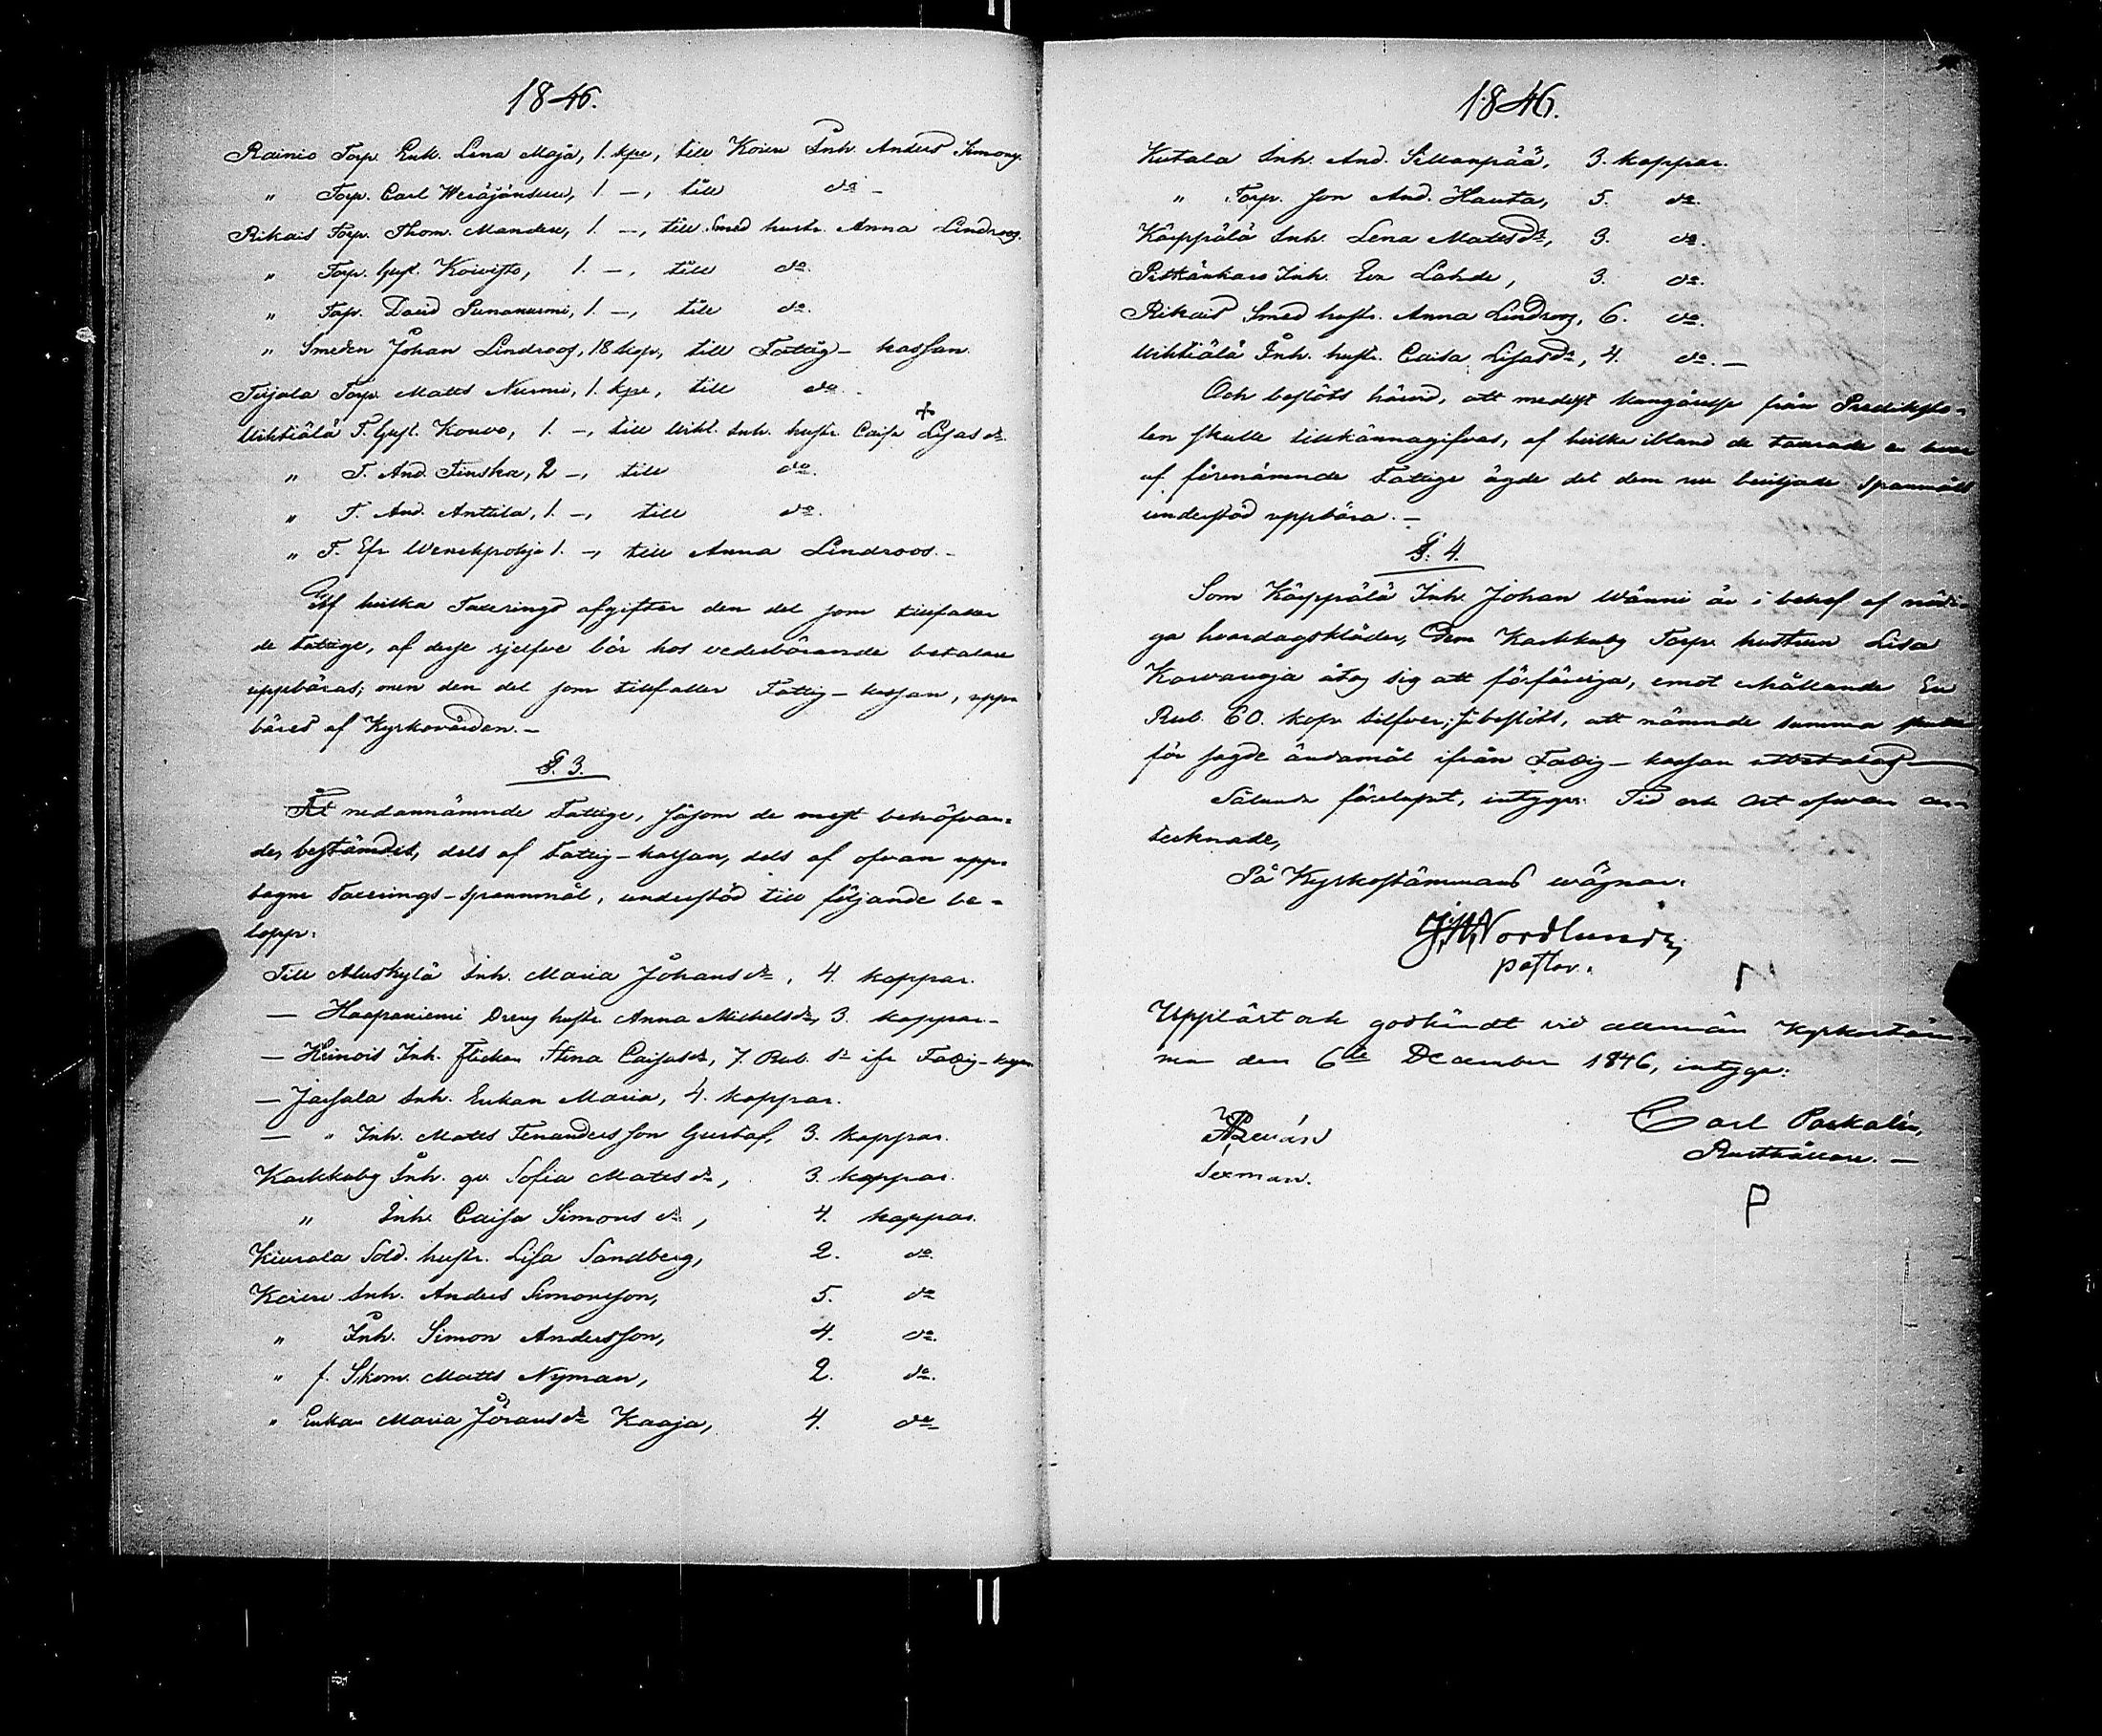 1846.
Rainio Torp. Enk. Lena Maja, 1. kpe, till Koieu Inh. Anders Simons.
" Torp. Carl Weräjänsuu, 1. —, till do —
Rikais Torp. Thom. Mandeu, 1. —, till Smed hustr. Anna Lindroos.
" Torp. Gust. Koivisto, 1. —, till do.
" Torp. David Sunanurmi, 1. —, till do.
" Smeden Johan Lindroos, 18 kop, till Fattig-kassan.
Torp. Matts Nurmi, 1. kpe, till do.
T. Gust. Kouvo, 1. —, till Inh. hustr. Caisa Lisas dr.
" T. And. Finska, 2 —, till do.
" T. And. Anttila, 1. —, till do.
" T. Efr. 1. —, till Anna Lindroos. —
Af hvilka Taxerings afgifter den del som tillfaller
de fattige, af desse sjelfve bör hos vederbörande betalare
uppbäras; men den del som tillfaller Fattig-kassan, upp-
bäres af Kyrkovärden. —
§. 3.
Åt nedannämnde Fattige, såsom de mest behöfvan-
de, bestämdes, dels af Fattig-kassan, dels af ofvan upp-
tagne Taxerings-spannmål, understöd till följande be-
lopp:
Till Aluskylä Inh. Maria Johans dr, 4. kappar.
— Haapaniemi Dreng hustr. Anna Michels dr, 3. kappar. —
— Heinois Inh. flickan Stina Caisas dr, 7. Rub. Sr ifr. Fattig-kassan
— Jaisala Inh. Enkan Maria, 4. kappar.
— " Inh. Matts Gustaf, 3. kappar.
Karkkuby Inh. qv. Sofia Matts dr, 3. kappar.
" Inh. Caisa Simons dr, 4. kappar.
Kiurala Sold. hustr. Lisa Sandberg, 2. do.
Inh. Anders Simonsson, 5. do
" Inh. Simon Andersson, 4. do.
" f. Skom. Matts Nyman, 2. do.
" Enkan Maria Jörans dr Kaaja, 4. do
1846.
Kutala Inh. And. Sillanpää, 3. kappar.
" Torp. son And. Hauta, 5. do.
Käppälä Inh. Lena Matts dr, 3. do.
Inh. Eva Lähde, 3. do.
Rikais Smed hustr. Anna Lindroos, 6. do.
Inh. hustr. Caisa Lisas dr, 4. do. —
Och beslöts härvid, att medelst kungörelse från Prediksto-
len skulle tillkännagifvas, af hvilke ibland de taxerade en hvar
af förenämnde Fattige ägde det dem nu beviljade spannmåls
understöd uppbära. —
§. 4.
Som Käppälä Inh. Johan Wänni är i behof af nödi-
ga hvardagskläder, dem Karkkuby Torp. hustrun Lisa
åtog sig att förfärdiga, emot erhållande En
Rub. 60. kop. silfver; så beslöts, att nämnde summa skulle
för sagde ändamål ifrån Fattig-kassan utbetalas —
Sålunda förelupit, intygar: Tid och Ort ofvan an-
tecknade,
På Kyrkostämmans wägnar:
Nordlund,
pastor.
Uppläst och godkändt vid allmän Kyrkostäm-
ma den 6te December 1846, intyga:
Sexman.
Carl Paskalin,
Rusthållare. —
P